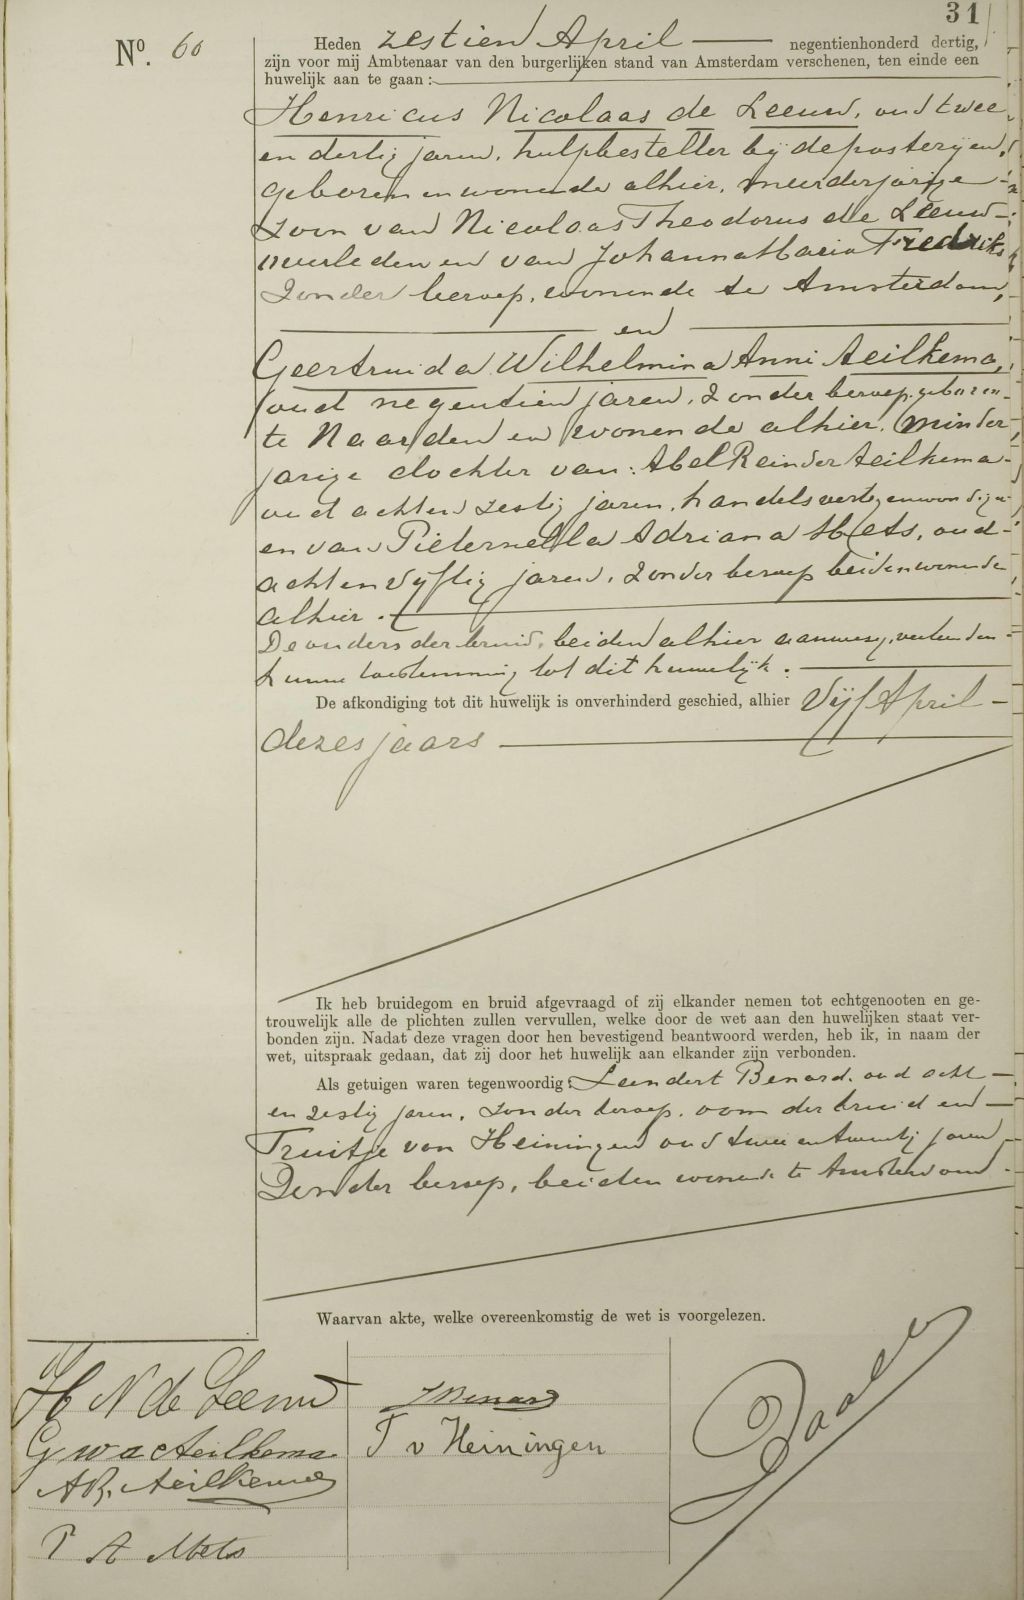 31
Nº. 60
Heden zestien April negentienhonderd dertig,
zijn voor mij Ambtenaar van den burgerlijken stand van Amsterdam verschenen, ten einde een
huwelijk aan te gaan:
Henricus Nicolaas de Leeuw, oud twee
en dertig jaren, hulpbesteller bij de posterijen,
geboren en wonende alhier, meerderjarige
zoon van Nicolaas Theodorus de Leeuw
overleden en van Johanna Maria Fredriks
zonder beroep, wonende te Amsterdam,
en
Geertruida Wilhelmina Anni Aeilkema,
oud negentien jaren, zonder beroep, geboren
te Naarden en wonende alhier, minder
jarige dochter van: Abel Reinder Aeilkema
oud acht en zestig jaren, handelsvertegenwoordiger
en van Pieternella Adriana Mets, oud
acht en vijftig jaren, zonder beroep beiden wonende
alhier.
De ouders der bruid, beiden alhier aanwezig, verleenden
hunne toestemming tot dit huwelijk.
De afkondiging tot dit huwelijk is onverhinderd geschied, alhier Vijf April
dezes jaars
Ik heb bruidegom en bruid afgevraagd of zij elkander nemen tot echtgenooten en ge-
trouwelijk alle de plichten zullen vervullen, welke door de wet aan den huwelijken staat ver-
bonden zijn. Nadat deze vragen door hen bevestigend beantwoord werden, heb ik, in naam der
wet, uitspraak gedaan, dat zij door het huwelijk aan elkander zijn verbonden.
Als getuigen waren tegenwoordig: Leendert Benard, oud acht
en zestig jaren, zonder beroep, oom der bruid en
Truitje van Heiningen oud twee en twintig jaren
Zonder beroep, beiden wonende te Amsterdam.
Waarvan akte, welke overeenkomstig de wet is voorgelezen.
H N de Leeuw
G W A Aeilkema
A.R. Aeilkema
P A Mets
L Benard
T v Heiningen